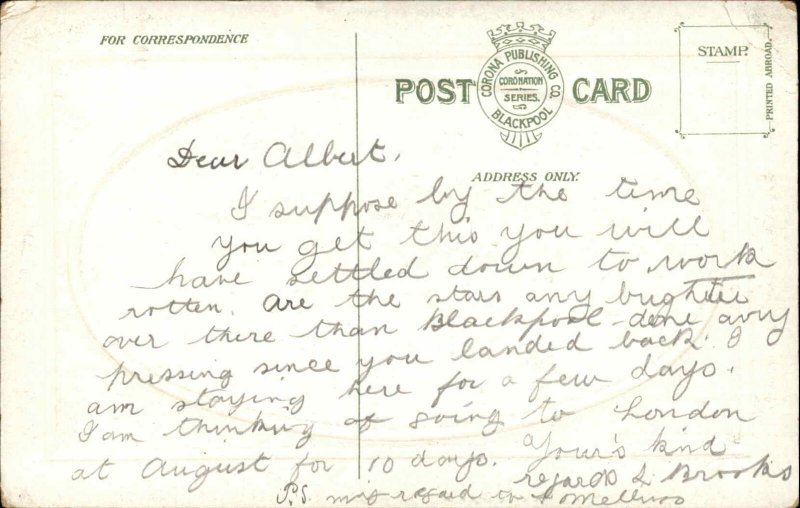 FOR CORRESPONDENCE
POST CARD
CORONA PUBLISHING CO. BLACKPOOL
CORONATION SERIES.
STAMP.
PRINTED ABROAD.
ADDRESS ONLY.
Dear Albert,
I suppose by the time
you get this you will
have settled down to work
rotten. Are the stars any brighter
over there than Blackpool done any
pressing since you landed back. I
am staying here for a few days.
I am thinking of going to London
at August for 10 days. Your's kind
regards L Brooks
P.S. regard to